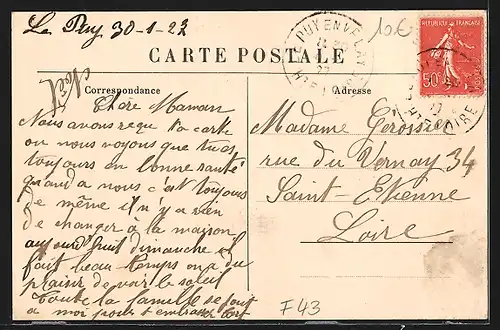 Le Puy 30-1-27
10€
LE PUY EN VELAY
REPUBLIQUE FRANÇAISE
50c
CARTE POSTALE
Correspondance
Adresse
Chere Maman
Nous avons reçu ta carte
ou nous voyons que tu as
toujours en bonne santé
quand a nous c'est toujours
de même il n'y a rien
de changer à la maison
aujourd'huit dimanche il
fait beau temps on a du
plaisir de voir le soleil
Toute la famille se joint
a moi pour t'embrasser fort
Madame Gerossier
rue du Vernay 34
Saint-Etienne
Loire
F43